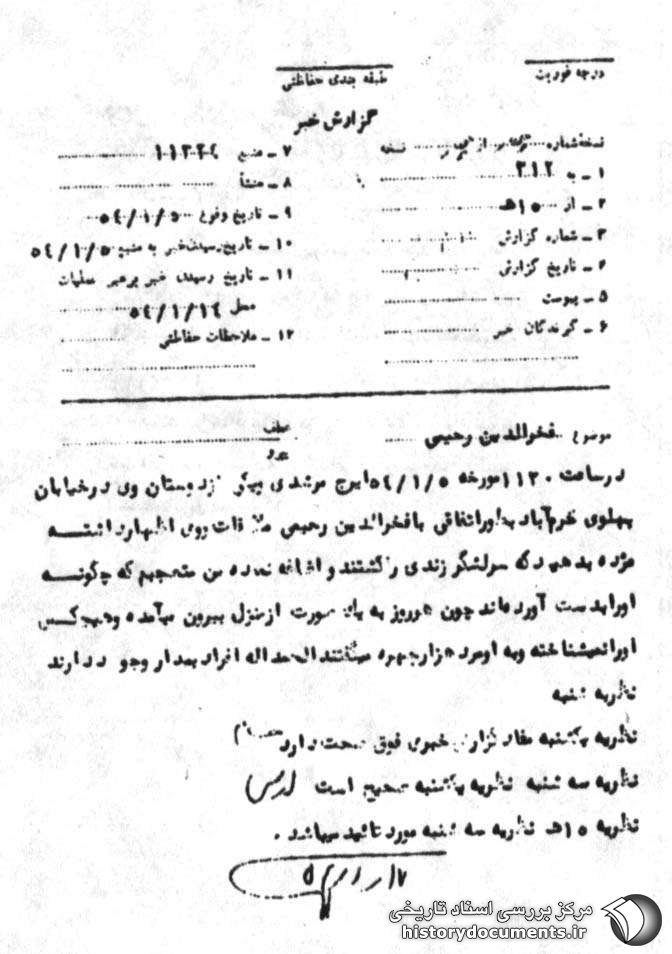 درجه فوریت
طبقه بندی حفاظتی
گزارش خبر
نسخه شماره از نسخه
۱ ـ به ۳۱۲
۲ ـ از ۱۵هـ
۳ ـ شماره گزارش
۴ ـ تاریخ گزارش
۵ ـ پیوست
۶ ـ گیرندگان خبر
۷ ـ منبع
۸ ـ منشأ
۹ ـ تاریخ وقوع ۵۴/۱/۵
۱۰ ـ تاریخ رسیدن خبر به منبع ۵۴/۱/۵
۱۱ ـ تاریخ رسیدن خبر برهبر عملیات
محل ۵۴/۱/۱۴
۱۲ ـ ملاحظات حفاظتی
موضوع فخرالدین رحیمی
عطف
پیرو
درساعت ۱۱۳۰ مورخه ۵۴/۱/۵ ایرج مرشدی یکی از دوستان وی درخیابان
پهلوی خرم‌آباد بطور اتفاقی بافخرالدین رحیمی ملاقات وی اظهار داشته
مژده بدهید که سرلشگر زندی را کشتند و اضافه نموده من متعجبم که چگونه
اورا بدست آورده‌اند چون هرروز به یک صورت ازمنزل بیرون میآمده وهیچکس
اورانمیشناخته وبه اومرد هزارچهره میگفتند الحمداله افراد بیدار وجود دارند
نظریه شنبه
نظریه یکشنبه مفاد گزارش خبری فوق صحت دارد
نظریه سه شنبه نظریه یکشنبه صحیح است
نظریه ۱۵هـ نظریه سه شنبه مورد تائید میباشد .
مرکز بررسی اسناد تاریخی
historydocuments.ir